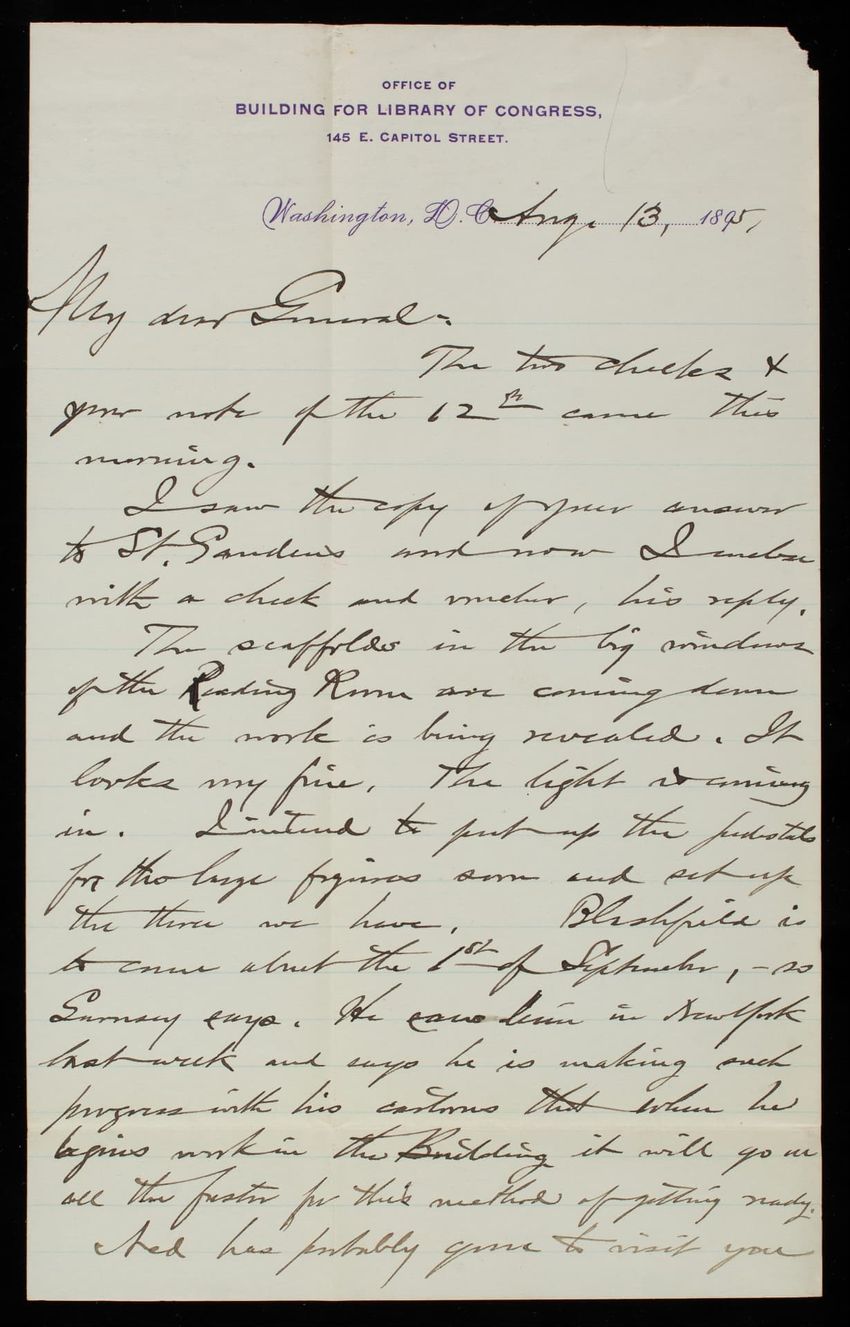 OFFICE OF
BUILDING FOR LIBRARY OF CONGRESS,
145 E. CAPITOL STREET.
Washington, D.C. Aug. 13, 1895,
My dear General:
The two checks &
your note of the 12th came this
morning.
I saw the copy of your answer
to St. Gaudens and now I enclose
with a check and voucher, his reply.
The scaffolds in the big windows
of the Reading Room are coming down
and the work is being revealed. It
looks very fine. The light is coming
in. I intend to put up the pedestals
for the large figures soon and set up
the three we have. Blashfield is
to come about the 1st of September, - so
Garnsey says. He saw him in New York
last week and says he is making such
progress with his cartoons that when he
begins work in the Building it will go on
all the faster for this method of getting ready.
Ned has probably gone to visit you